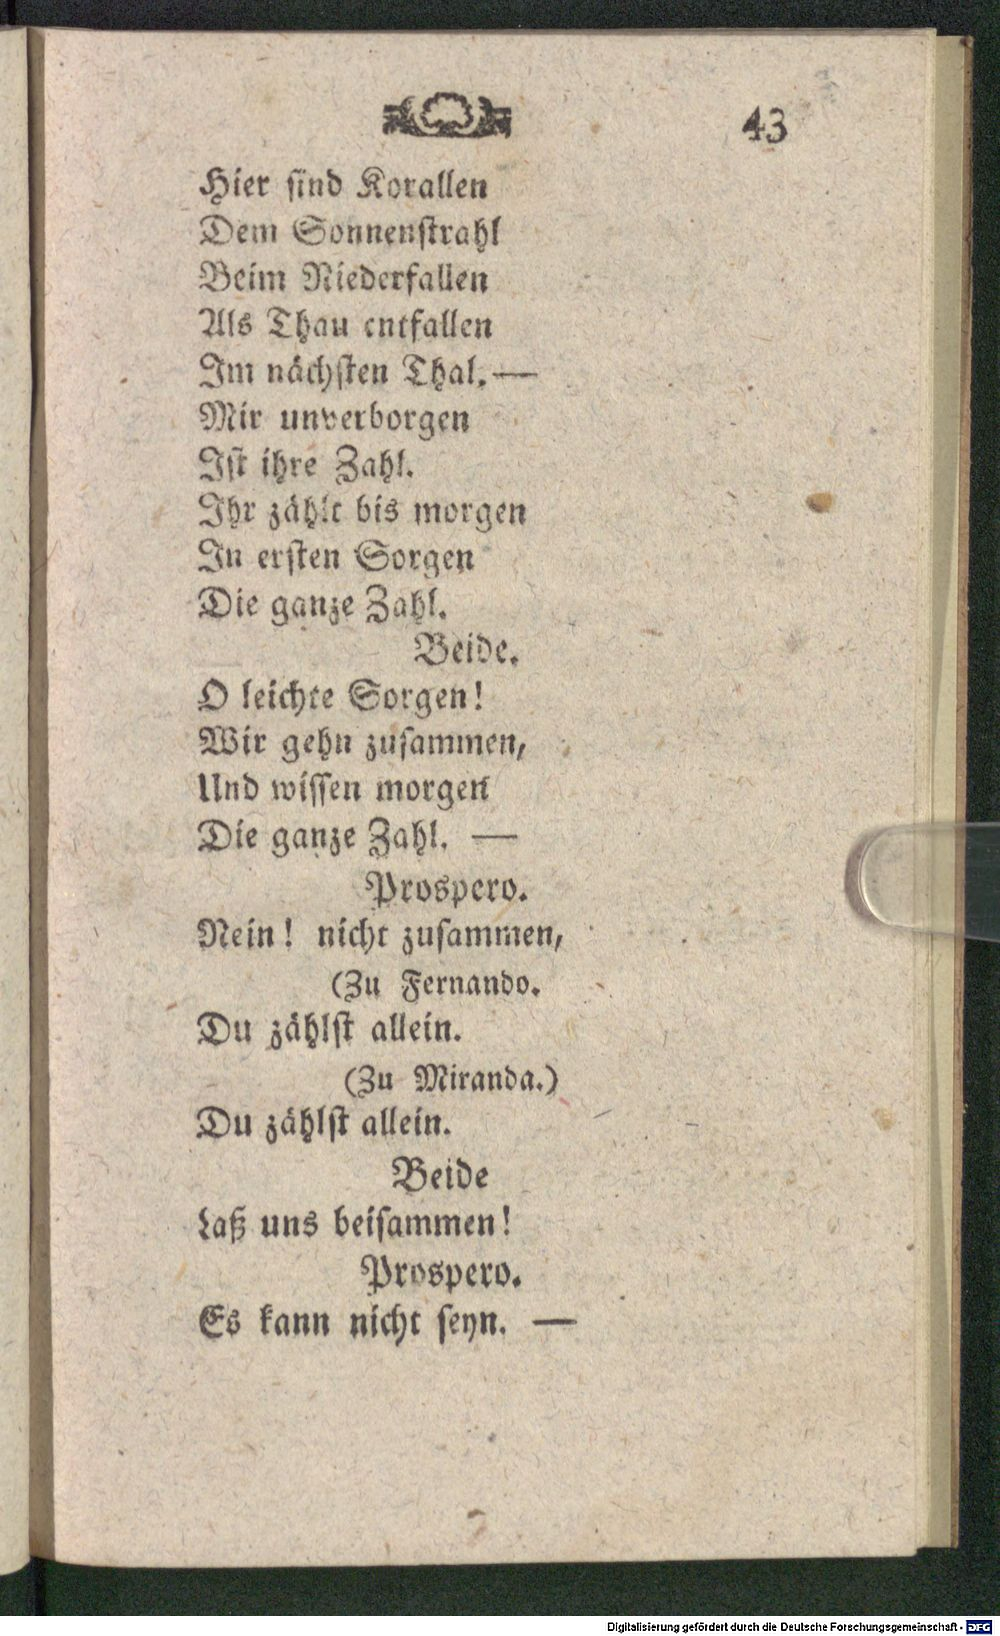 43
Hier ſind Korallen
Dem Sonnenſtrahl
Beim Niederfallen
Als Thau entfallen
Im nächſten Thal. —
Mir unverborgen
Iſt ihre Zahl.
Ihr zählt bis morgen
In erſten Sorgen
Die ganze Zahl.
Beide.
O leichte Sorgen!
Wir gehn zuſammen,
Und wiſſen morgen
Die ganze Zahl. —
Prospero.
Nein! nicht zuſammen,
(Zu Fernando.
Du zählſt allein.
(Zu Miranda.)
Du zählſt allein.
Beide
Laß uns beiſammen!
Prospero.
Es kann nicht ſeyn. —
Digitalisierung gefördert durch die Deutsche Forschungsgemeinschaft - DFG